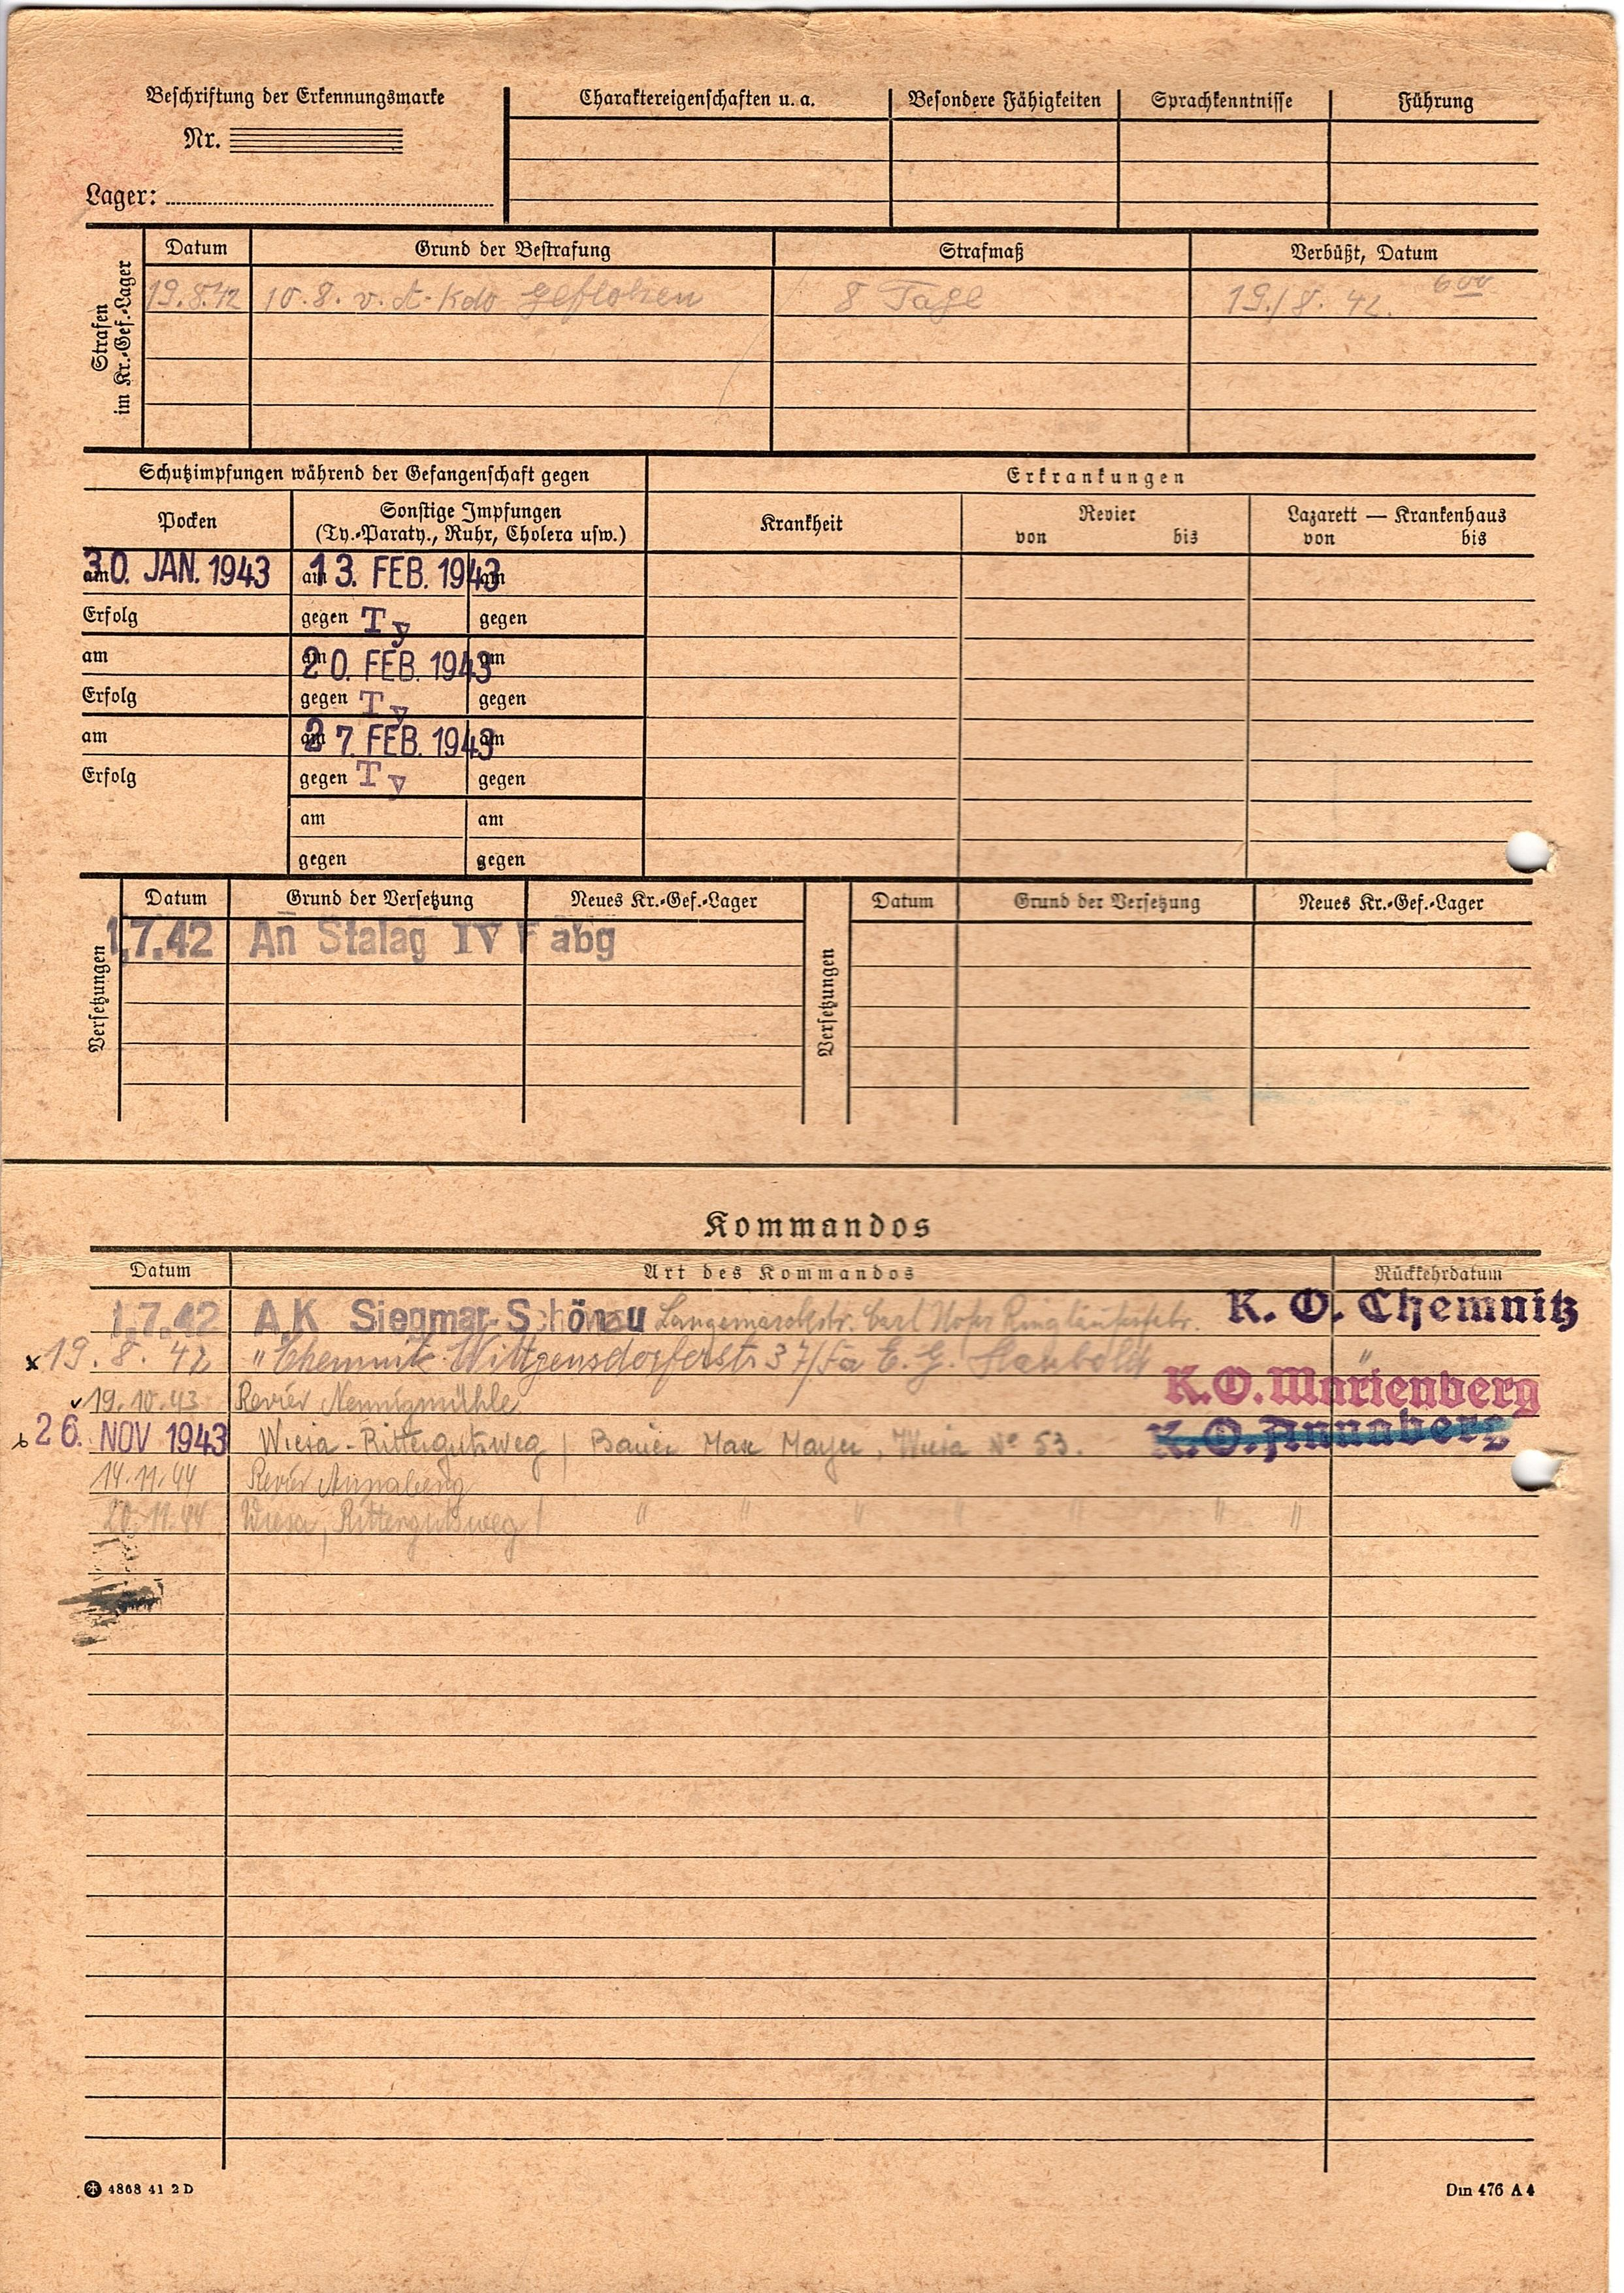 Beschriftung der Erkennungsmarke
Nr.
Lager:
Charaktereigenschaften u. a. Besondere Fähigkeiten Sprachkenntnisse Führung
Strafen
im Kr.-Gef.-Lager
Datum Grund der Bestrafung Strafmaß Verbüßt, Datum
19.8.42 10.8. v. A-Kdo geflohen 8 Tage 19./8. 42. 6 00
Schutzimpfungen während der Gefangenschaft gegen Erkrankungen
Pocken Sonstige Impfungen Krankheit Revier Lazarett — Krankenhaus
(Ty.-Paraty., Ruhr, Cholera usw.) von bis von bis
am 30. JAN. 1943 am 13. FEB. 1943 am
Erfolg gegen Ty gegen
am am 20. FEB. 1943 am
Erfolg gegen Ty gegen
am am 27. FEB. 1943 am
Erfolg gegen Ty gegen
am am
gegen gegen
Versetzungen Datum Grund der Versetzung Neues Kr.-Gef.-Lager Versetzungen Datum Grund der Versetzung Neues Kr.-Gef.-Lager
1.7.42 An Stalag IV F abg
Kommandos
Datum Art des Kommandos Rückkehrdatum
1.7.42 A.K Siegmar-Schönau Langemarckstr. Carl Hofer Ringläuferfabr. K. O. Chemnitz
x 19. 8. 42 " Chemnitz Wittgensdorferstr 37/Fa E. G. Haubold "
19.10.43 Revier Nennigmühle K.O. Marienberg
26. NOV 1943 Wiesa - Rittergutsweg / Bauer Max Mayer, Wiesa No 53. K.O. Annaberg
14.11.44 Revier Annaberg
20.11.44 Wiesa, Rittergutsweg / " " " " " " "
4868 41 2 D
Din 476 A 4